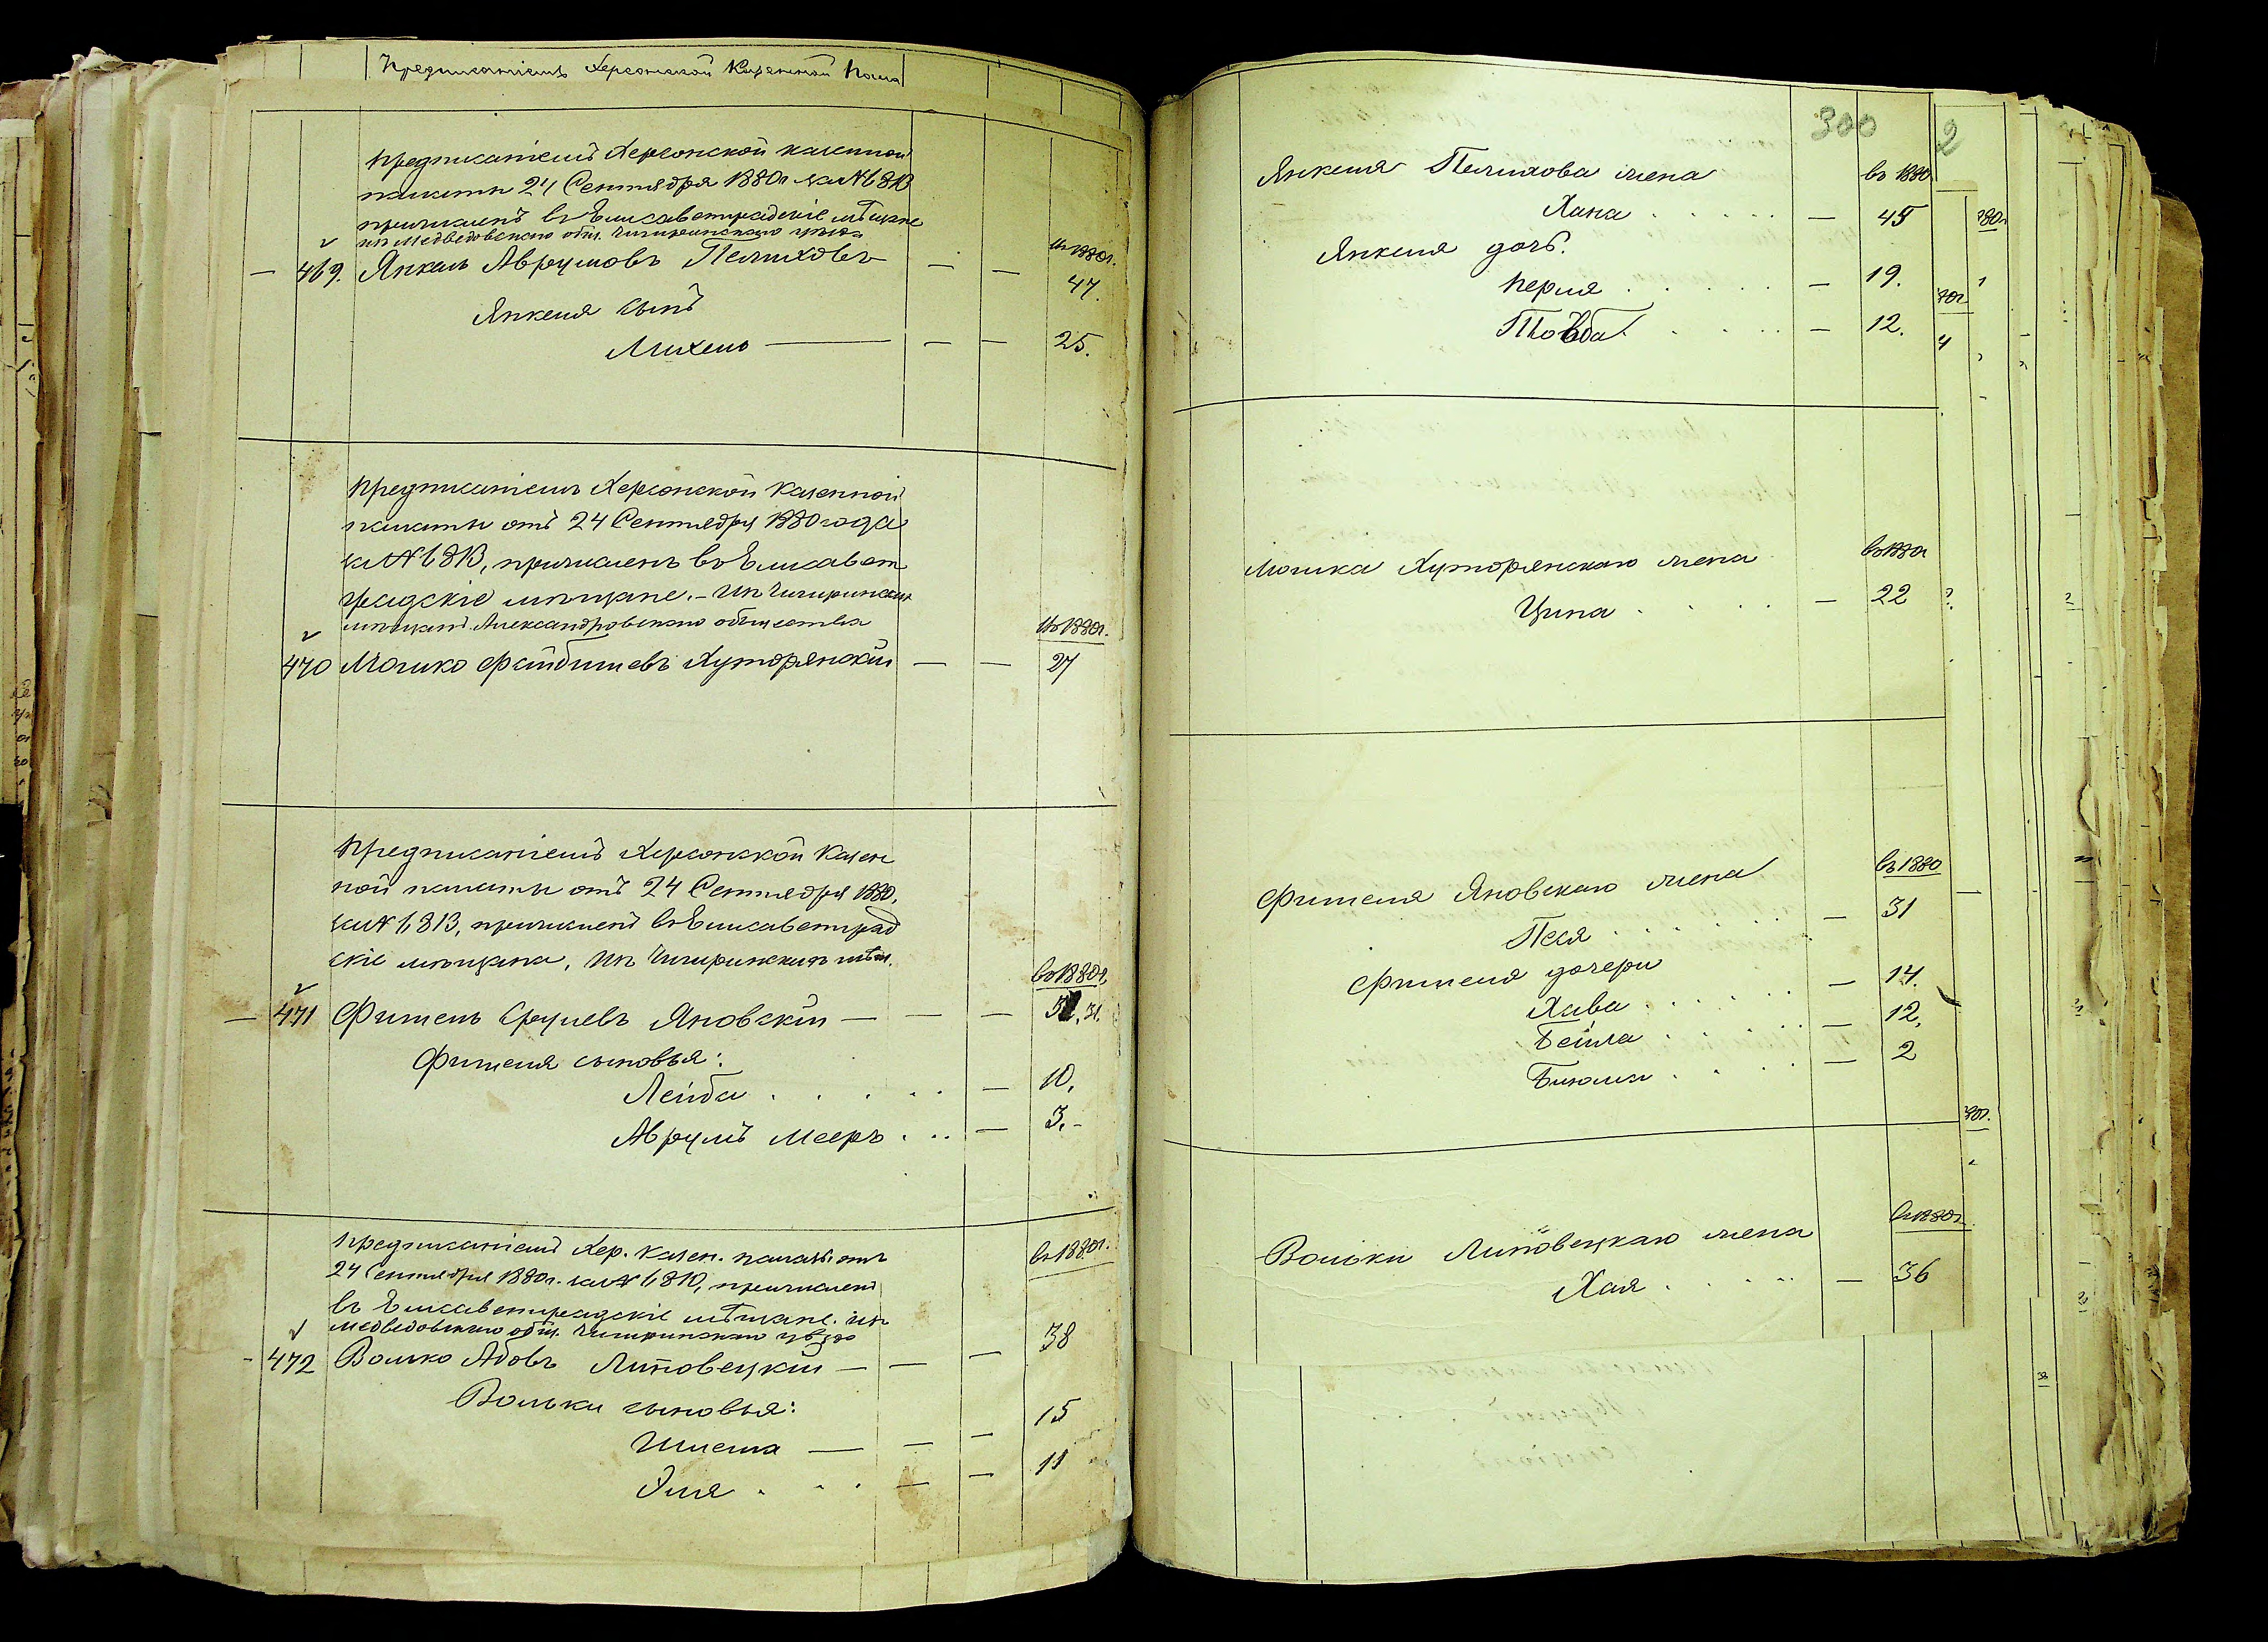 Предписаніемъ Херсонской Казенной Пала
Предписаніемъ Херсонской казенной
палаты 24 Сентября 1880г за № 6813
причисленъ въ Елисаветградскіе мѣщане
изъ Медведовскаго общ. Чигиринскаго уѣзда
въ 1880г.
469. Янкель Аврумовъ Пелиховъ — — 47.
Янкеля сынъ
Михель — — — 25.
Предписаніемъ Херсонской Казенной
палаты отъ 24 Сентября 1880 года
за № 6813, причисленъ въ Елисавет
градскіе мѣщане. - Изъ Чигиринскихъ
мѣщанъ Александровскаго общества
въ 1880г.
470 Мошко Файбишевъ Хуторянскій — — 27
Предписаніемъ Херсонской Казен
ной палаты отъ 24 Сентября 1880.
за № 6813, причисленъ въ Елисаветград
скіе мѣщане, Изъ Чигиринскихъ мѣщ.
въ 1880г.
— 471 Фишель Сруневъ Яновскій — — — 31.
Фишеля сыновья:
Лейба . . . . — 10.
Аврумъ Мееръ . . . — 3.-
Предписаніемъ Хер. Казен. палаты отъ
24 Сентября 1880г. за № 6810, причисленъ
въ Елисаветградскіе мѣщане. изъ
Медведовскаго общ. Чигиринскаго уѣзда
въ 1880г.
- 472 Волько Абовъ Липовецкій — — — 38
Вольки сыновья: 15
Шлема — — —
Эля . . . — — 11
300
2
Янкеля Пелихова жена въ 1880
Хана . . . . . — 45
Янкеля дочь.
Перля . . . . . — 19.
Товба . . . . — 12.
въ 1880г
Мошка Хуторянскаго жена
Ципа . . . . — 22
въ 1880
Фишеля Яновскаго жена
Песя . . . . . — 31
Фишеля дочери
Хава . . . . . — 14.
Бейла . . . . . — 12.
Блюма . . . . — 2
въ 1880г
Вольки Липовецкаго жена
Хая . . . . . — 36